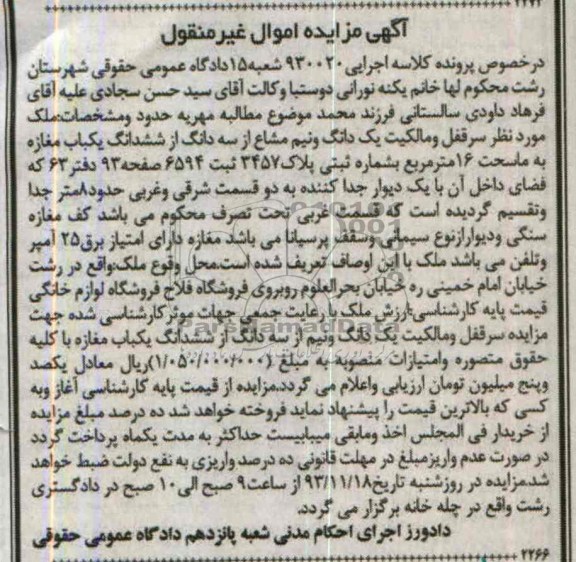 ۲۲۷۲
آگهی مزایده اموال غیرمنقول
درخصوص پرونده کلاسه اجرایی ۹۳۰۰۲۰ شعبه۱۵دادگاه عمومی حقوقی شهرستان
رشت محکوم لها خانم یکنه نورانی دوستبا وکالت آقای سید حسن سجادی علیه آقای
فرهاد داودی سالستانی فرزند محمد موضوع مطالبه مهریه حدود ومشخصات:ملک
مورد نظر سرقفل ومالکیت یک دانگ ونیم مشاع از سه دانگ از ششدانگ یکباب مغازه
به ماسحت ۱۶مترمربع بشماره ثبتی پلاک۳۴۵۷ ثبت ۶۵۹۴ صفحه۹۳ دفتر۶۳ که
فضای داخل آن با یک دیوار جدا کننده به دو قسمت شرقی وغربی حدود۸متر جدا
وتقسیم گردیده است که قسمت غربی تحت تصرف محکوم می باشد کف مغازه
سنگی ودیوارازنوع سیمانی وسقف پرسیانا می باشد مغازه دارای امتیاز برق۲۵ آمپر
وتلفن می باشد ملک با این اوصاف تعریف شده است.محل وقوع ملک:واقع در رشت
خیابان امام خمینی ره خیابان بحرالعلوم روبروی فروشگاه فلاح فروشگاه لوازم خانگی
قیمت پایه کارشناسی:ارزش ملک با رعایت جمعی جهات موثرکارشناسی شده جهت
مزایده سرقفل ومالکیت یک دانگ ونیم از سه دانگ از ششدانگ یکباب مغازه با کلیه
حقوق متصوره وامتیازات منصوبه به مبلغ (۱/۰۵۰/۰۰۰/۰۰۰)ریال معادل یکصد
وپنج میلیون تومان ارزیابی واعلام می گردد.مزایده از قیمت پایه کارشناسی آغاز وبه
کسی که بالاترین قیمت را پیشنهاد نماید فروخته خواهد شد ده درصد مبلغ مزایده
از خریدار فی المجلس اخذ ومابقی میبایست حداکثر به مدت یکماه پرداخت گردد
در صورت عدم واریزمبلغ در مهلت قانونی ده درصد واریزی به نفع دولت ضبط خواهد
شد.مزایده در روزشنبه تاریخ۹۳/۱۱/۱۸ از ساعت۹ صبح الی۱۰ صبح در دادگستری
رشت واقع در چله خانه برگزار می گردد.
دادورز اجرای احکام مدنی شعبه پانزدهم دادگاه عمومی حقوقی
۲۲۶۶
ParsNamadData